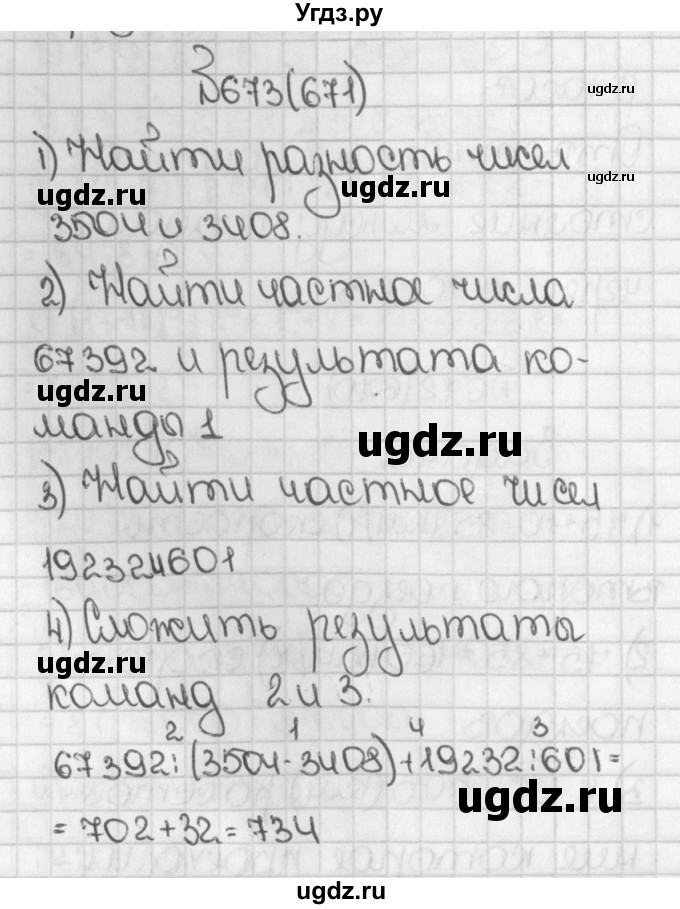 Угдз.ру
№673(671)
ugdz.ru
1) Найти разность чисел
ugdz.ru ugdz.ru ugdz.ru
3504 и 3408.
2) Найти частное числа
67392 и результата ко-
ugdz.ru
манды 1
ugdz.ru
3) Найти частное чисел
19232и601
4) Сложить результаты
ugdz.ru
команд 2 и 3.
2 1 4 3
67392:(3504-3408)+19232:601=
ugdz.ru
=702+32=734
ugdz.ru